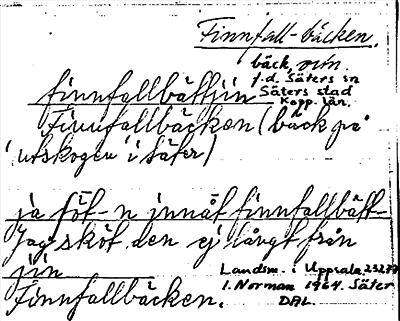 Finnfall-bäcken.
bäck, otn.
f.d. Säters sn
Säters stad
Kopp. län.
finnfallbättjin
Finnfallbäcken (bäck på
'utskogen' i Säter)
ja föt-n innåt finnfallbätt-
Jag sköt den ej långt från
jin
Finnfallbäcken.
Landsm. i Uppsala 23277
I. Norman 1964. Säter
DAL.